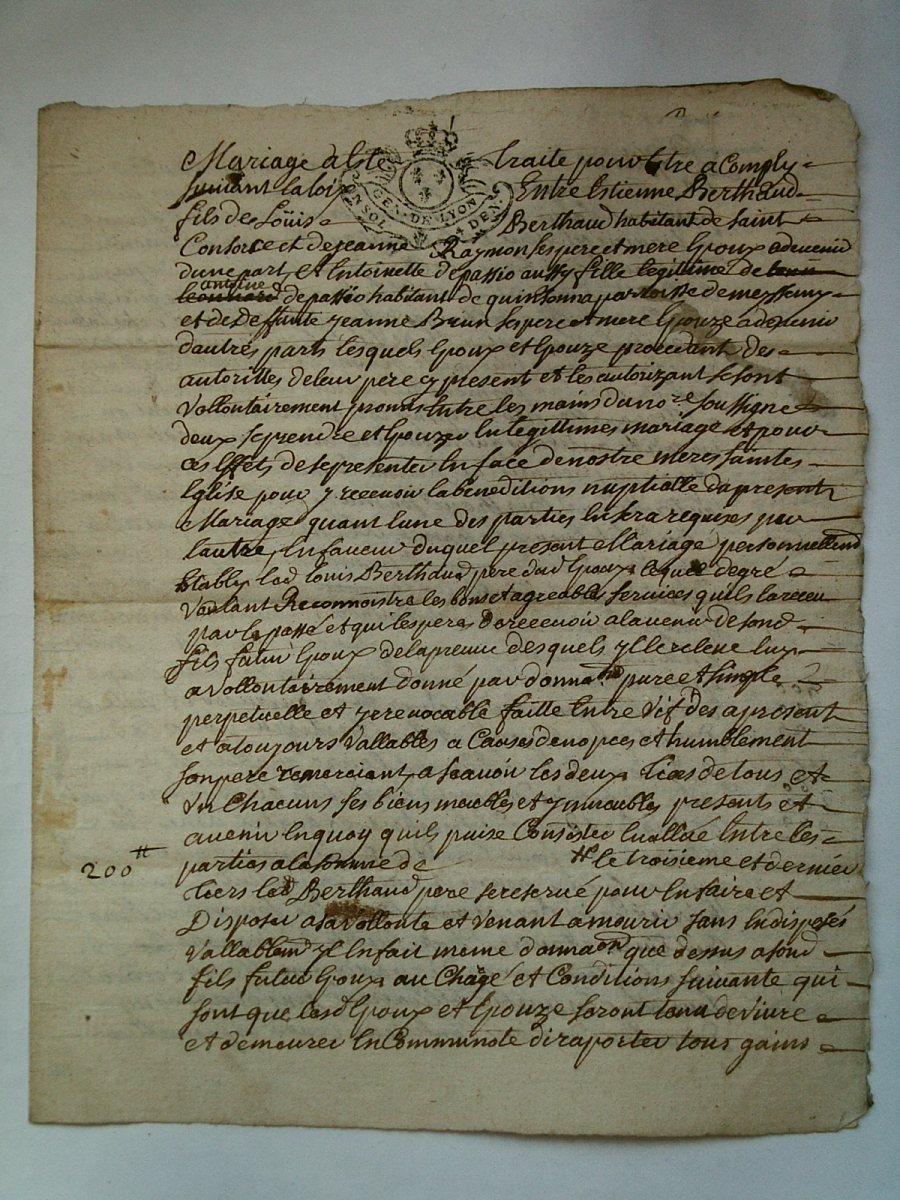 Mariage a este traité pour estre accomply
suivant la loix Entre Estienne Berthaud
fils de Loüis Berthaud habitant de Saint
GEN. DE LYON
UN SOL 4 DEN.
Consorce et de jeanne Raymon ses pere et mere Epoux advenir
dune part, Et Entoinette depassio aussy fille legittime de
antoine
leonnard depassio habitant de quinsonna parroisse de messimy
et de Deffunte jeanne Brun ses pere et mere Epouze advenir
dautres parts lesquels Epoux et Epouze procedant des
autorittes de leur pere cy present et les autorizant se sont
Vollontairement promis Entre les mains du no.re soussigne
deux se prendre et Epouzer En legittimes mariage et pour
ces Effets de se presenter En face de nostre meres saintes
Eglise pour y recevoir la beneditions nuptialle du present
Mariage quant lune des parties En sera requises par
lautre, En faveur duquel present Mariage personnellemt
Etably led louis Berthaud pere dud Epoux lequel de gré
Voulant Reconnoistre les bons et agreable services quils la receu
par le passé et quil espere de recevoir a lavenir de sond
fils futur Epoux de la preuve desquels yl le releve luy
a vollontairement donné par donnaon pure et simple
perpetuelle et yrrevocable faitte Entre Vif des a present
et a toujours Vallables a Causes de nopces et humblement
son pere remerciant a scavoir les deux tiers de tous et
Un Chacuns ses biens meubles et ymmeubles presents et
avenir En quoy quils puise Consister Evallué Entre les
200tt
parties a la somme de tt le troisieme et dernier
tiers led Berthaud pere se reservé pour En faire et
Disposer a sa vollonte et venant a mourir sans En disposés
Vallablemt yl En fait meme donnaon que dessus a sond
fils futur Epoux au Chargé et Conditions suivante qui
sont que lesd Epoux et Epouze seront tenu de vivre
et demeurer En Communoté di raporter tous gains